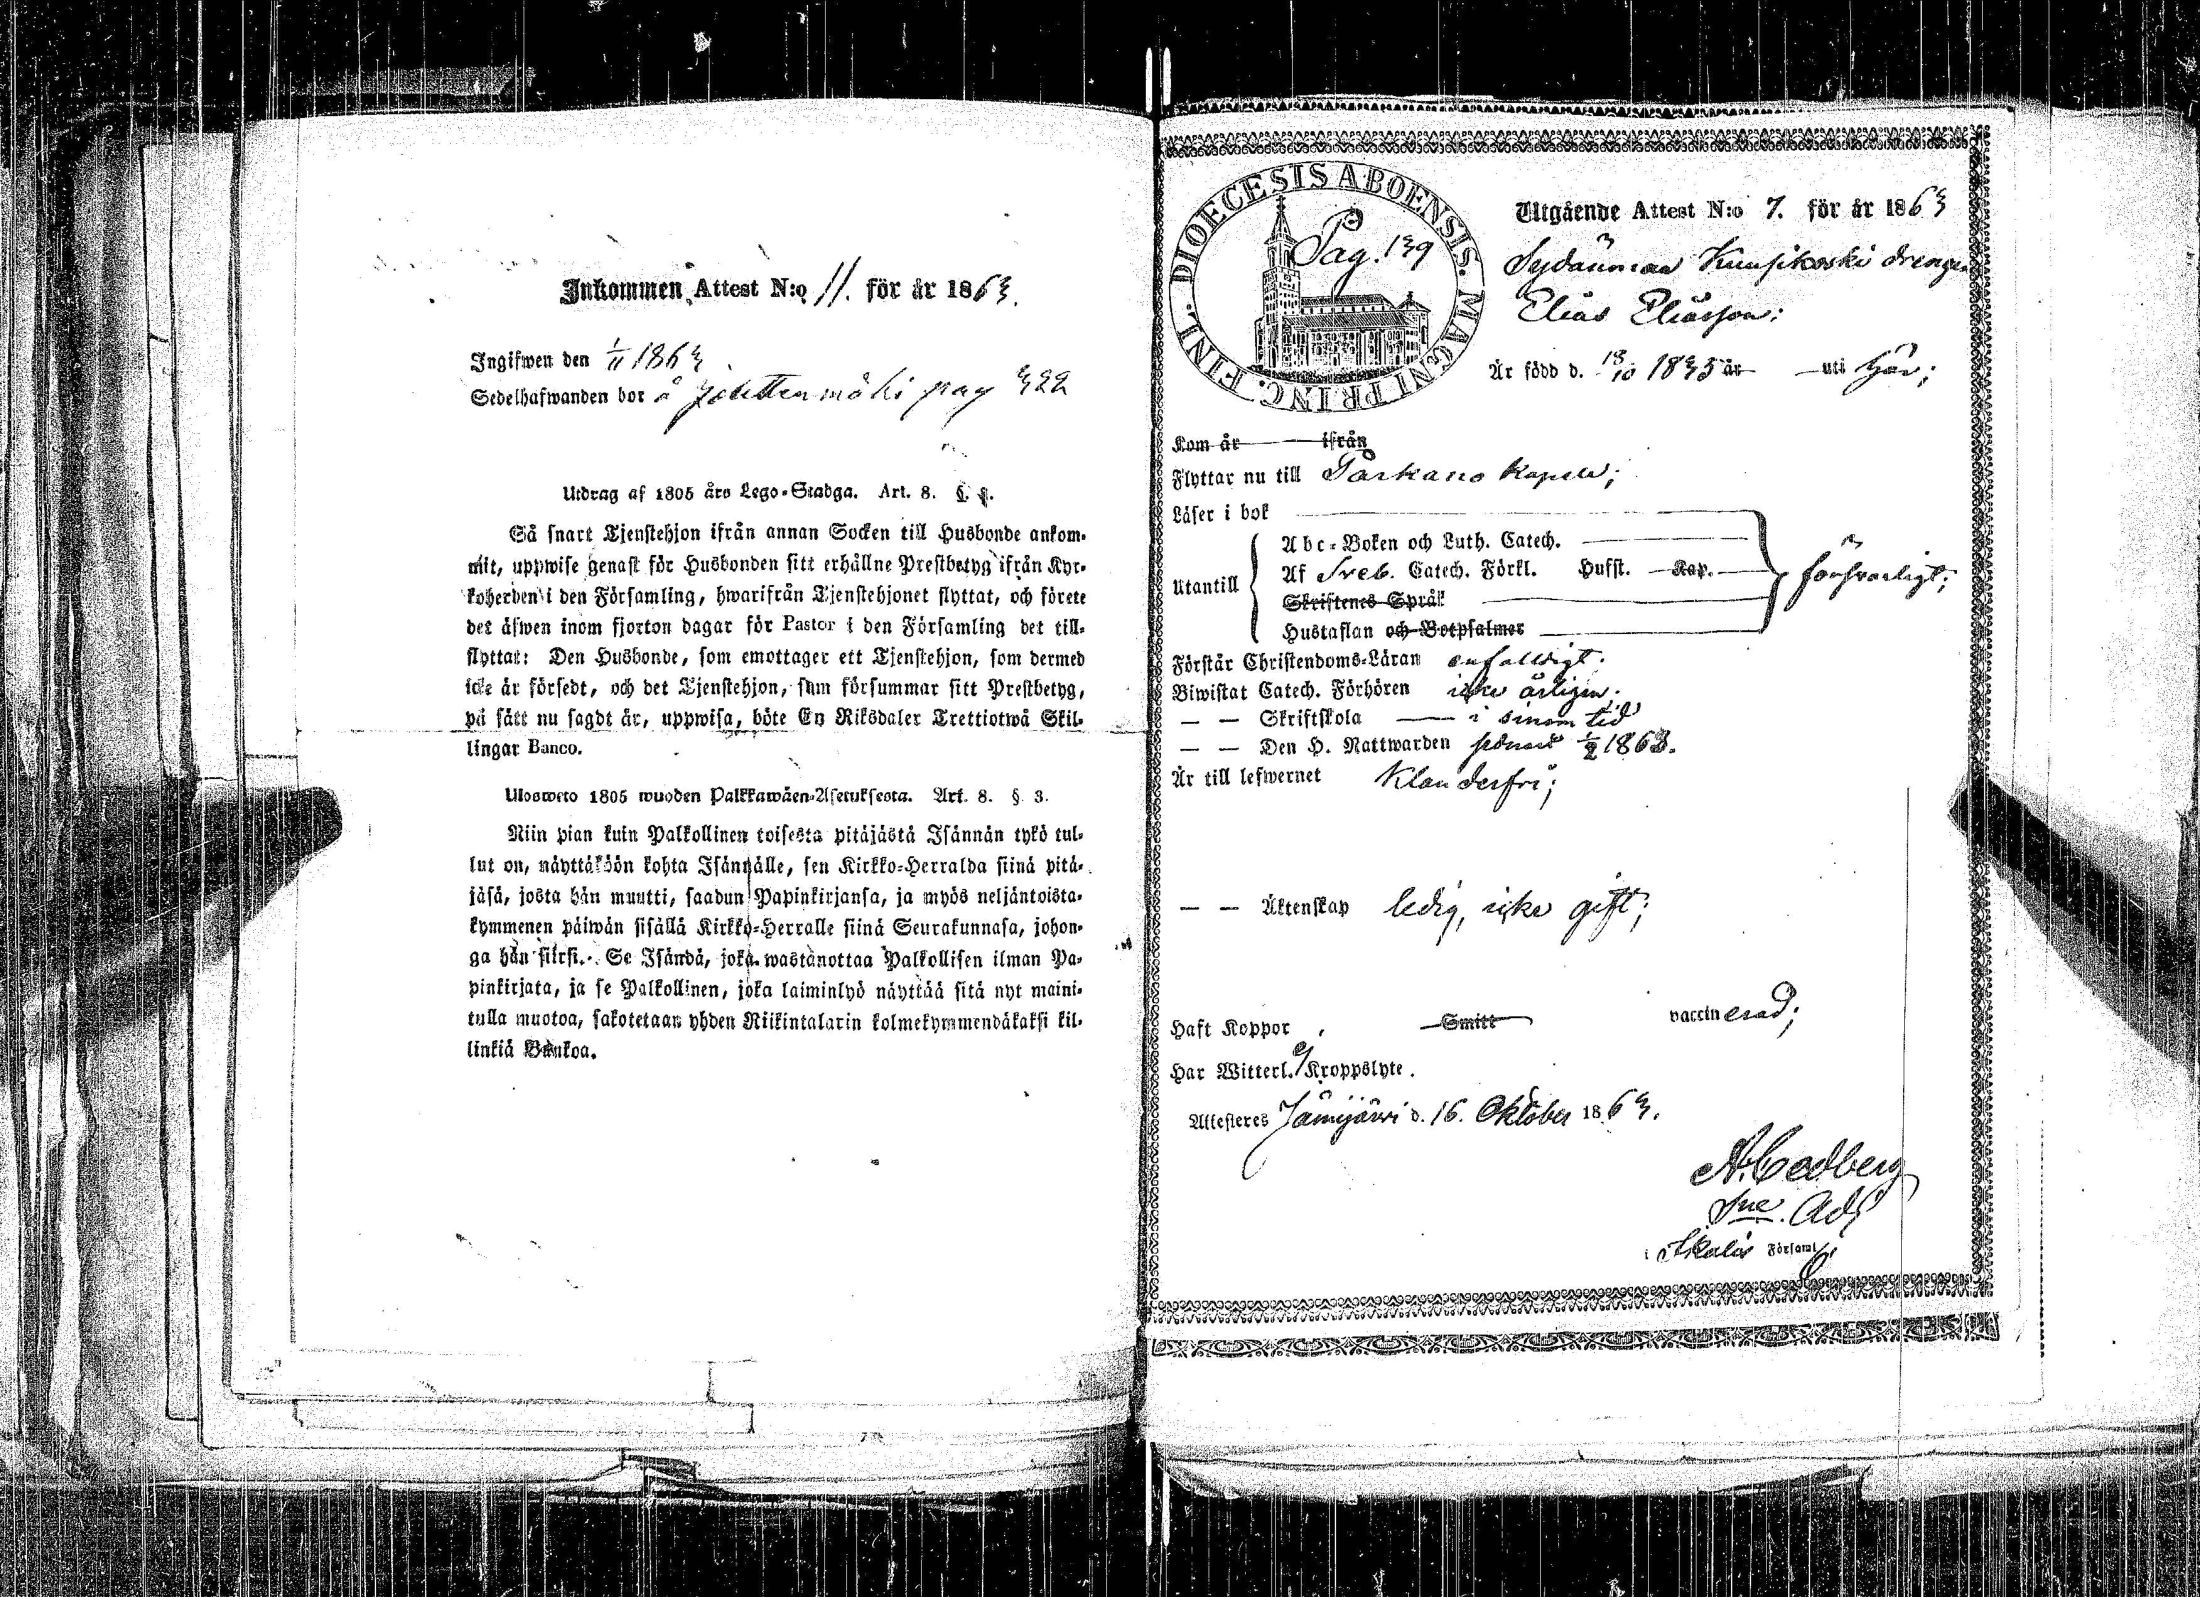 Inkommen Attest N:o 11. för år 1863.
Ingifwen den 1/11 1863
Sedelhafwanden bor å pag 322
Utdrag af 1805 års Lego-Stadga. Art. 8. §.
Så snart Tjenstehjon ifrån annan Socken till Husbonde ankom-
mit, uppwise genast för Husbonden sitt erhållne Prestbetyg ifrån Kyr-
koherden i den Församling, hwarifrån Tjenstehjonet flyttat, och förete
det äfwen inom fjorton dagar för Pastor i den Församling det till-
flyttat: Den Husbonde, som emottager ett Tjenstehjon, som dermed
icke är försedt, och det Tjenstehjon, som försummar sitt Prestbetyg,
på sätt nu sagdt är, uppwisa, böte En Riksdaler Trettiotwå Skil-
lingar Banco.
Ulosweto 1805 wuoden Palkkawäen-Asetuksesta. Art. 8. § 3.
Niin pian kuin Palkollinen toisesta pitäjästä Isännän tykö tul-
lut on, näyttäköön kohta Isännälle, sen Kirkko-Herralda siinä pitä-
jäsä, josta hän muutti, saadun Papinkirjansa, ja myös neljäntoista-
kymmenen päiwän sisällä Kirkko-Herralle siinä Seurakunnasa, johon-
ga hän siirsi. Se Isändä, joka wastanottaa Palkollisen ilman Pa-
pinkirjata, ja se Palkollinen, joka laiminlyö näyttää sitä nyt maini-
tulla muotoa, sakotetaan yhden Riikintalarin kolmekymmendäkaksi kil-
linkiä Bankoa.
DIOECESIS ABOENSIS. MAGNI PRINC. FINL.
Pag. 139
Utgående Attest N:o 7. för år 1863
Sydänmaa Kuusikoski drengen
Elias Eliasson;
Är född d. 13/10 1835 år uti här;
Kom år ifrån
Flyttar nu till Parkano Kapell;
Läser i bok
Utantill
Abc-Boken och Luth. Catech.
Af Sveb. Catech. Förkl. Husst. Kap.
Skriftenes Språk
Hustaflan och Botpsalmer
försvarligt;
Förstår Christendoms-Läran enfalldigt.
Biwistat Catech. Förhören icke årligen.
— — Skriftskola i sinom tid
— — Den H. Nattwarden 1/2 1863.
Är till lefwernet Klanderfri;
— — Äktenskap ledig, icke gift;
Haft Koppor, Smitt vaccinerad;
Har Witterl. ej Kroppslyte.
Attesteres Jämijärvi d. 16. Oktober 1863.
A. Cedberg
Adj
i Ikalis Församl